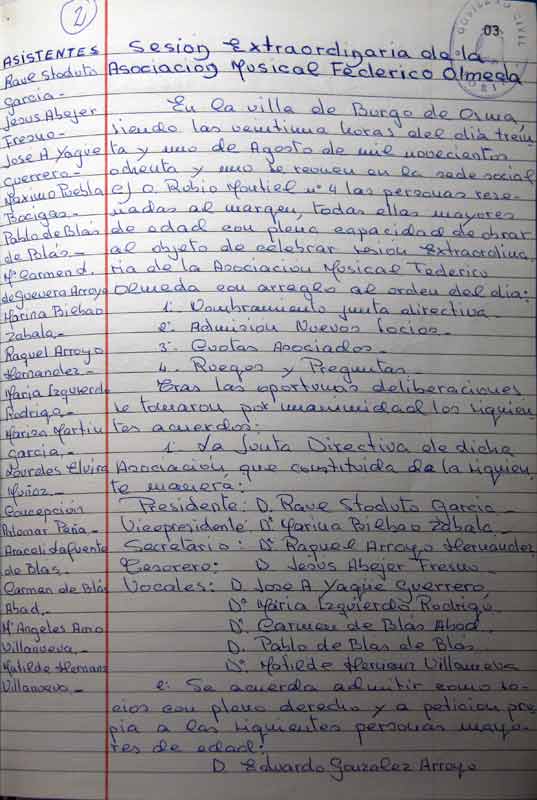 2
03
GOBIERNO CIVIL
ASISTENTES
Raue Stoduto
Garcia-
Jesus Abejer
Fresno-
Jose A Yagüe
Guerrero-
Maximo Puebla
Bocigas-
Pablo de Blás
de Blás-
Mª Carmen d.
de Guevera Arroyo
Marina Bielbao
Zabala-
Raquel Arroyo
Hernandez-
Maria Izquierdo
Rodrigo-
Mariza Martin
Garcia,-
Lourdes Elvira
Muñoz-
Concepcion
Palomar Peña-
Araceli Lafuente
de Blas.
Carmen de Blás
Abad.
Mª Angeles Amo
Villanueva,-
Matilde Hernans
Villanueva-
Sesion Extraordinaria de la
Asociación Musical Federico Olmeda
En la villa de Burgo de Osma,
siendo las veintiuna horas del dia trein
ta y uno de Agosto de mil novecientos
ochenta y uno se reunen en la sede social
c/ O. Rubio Montiel nº 4 las personas rese-
ñadas al margen, todas ellas mayores
de edad con plena capacidad de obrar
al objeto de celebrar sesion extraordina,
ria de la Asociacion Musical Federico
Olmeda con arreglo al orden del dia:
1. Nombramiento junta directiva-
2. Admision Nuevos Socios-
3. Cuotas Asociados-
4. Ruegos y Preguntas-
Tras las oportunas deliberaciones
se tomaron por unanimidad los siguien
tes acuerdos:
1. La Junta Directiva de dicha
Asociación que constituida de la siguien,
te manera:
Presidente: D. Raue Stoduto Garcia-
Vicepresidente: Dª Marina Bielbao Zabala-
Secretario: Dª Raquel Arroyo Hernandez
Tesorero: D Jesus Abejer Fresno-
Vocales: D. Jose A Yagüe Guerrero
Dª Maria Izquierdo Rodrigo
Dª Carmen de Blás Abad.
D. Pablo de Blas de Blás
Dª Matilde Hernans Villanueva
2. Se acuerda admitir como so-
cios con pleno derecho y a peticion pro
pia a las siguientes personas mayo-
res de edad:
D Eduardo Gonzalez Arroyo